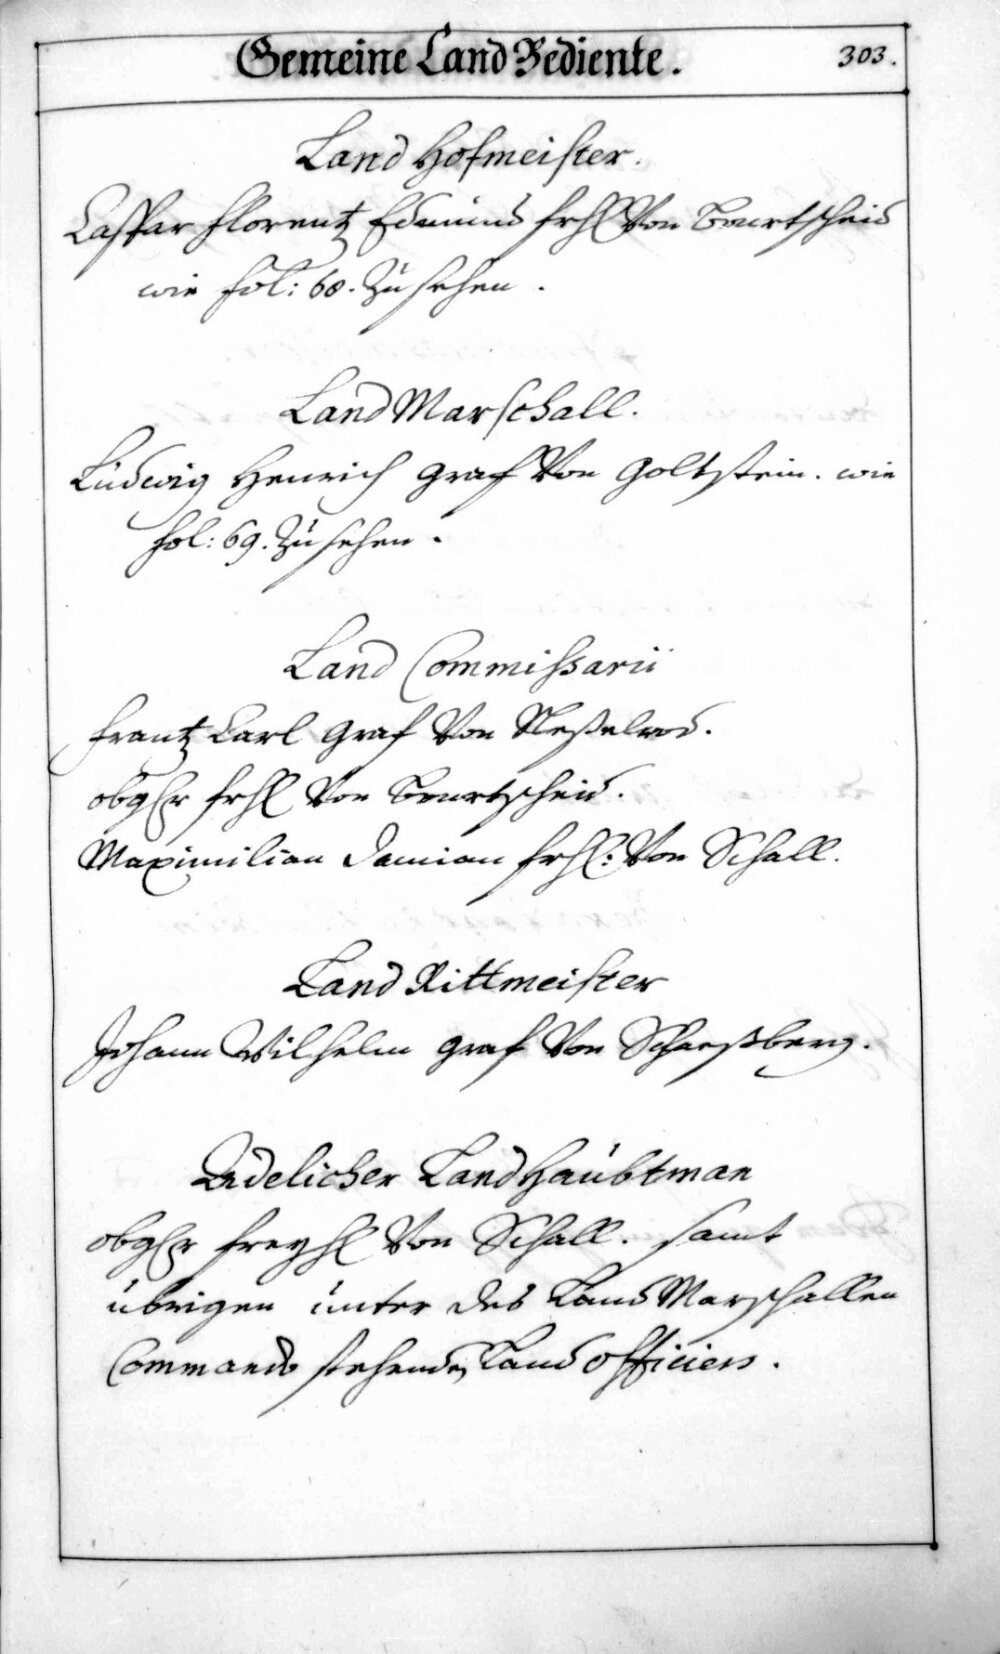 Gemeine Land Bediente.
303.
Land Hofmeister.
Caspar Florentz Edmund frhl Von Bourtscheid
wie fol: 68. Zu sehen.
Land Marschall.
Ludwig Henrich Graf Von Goltstein. wie
fol: 69. Zu sehen.
Land Commissarii
Frantz Carl Graf Von Neßelrod.
obgler frhl Von Bourtscheid.
Maximilian Damian frhl: Von Schall.
Land Rittmeister
Johann Wilhelm Graf Von Schaesberg.
Adelicher Land Haubtman
obgler Freyhl Von Schall. samt
übrigen unter des Land Marschallen
Commando stehenden Land officiers.